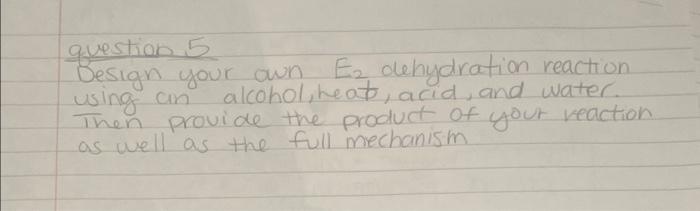 question 5
Design your own E₂ dehydration reaction
using an alcohol, heat, acid, and water.
Then provide the product of your reaction
as well as the full mechanism